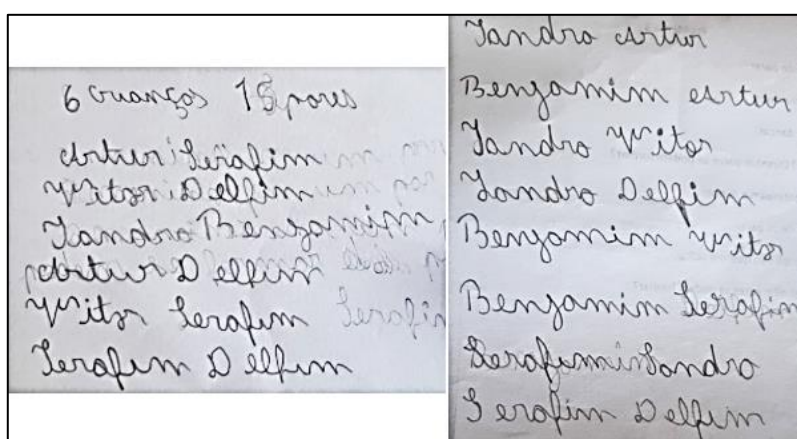 6 crianças 15 pares
Artur Serafim
Vitor Delfim
Sandro Benjamim
Artur Delfim
Vitor Serafim
Serafim Delfim
Sandro Artur
Benjamim Artur
Sandro Vitor
Sandro Delfim
Benjamim Vitor
Benjamim Serafim
Serafim Sandro
Serafim Delfim